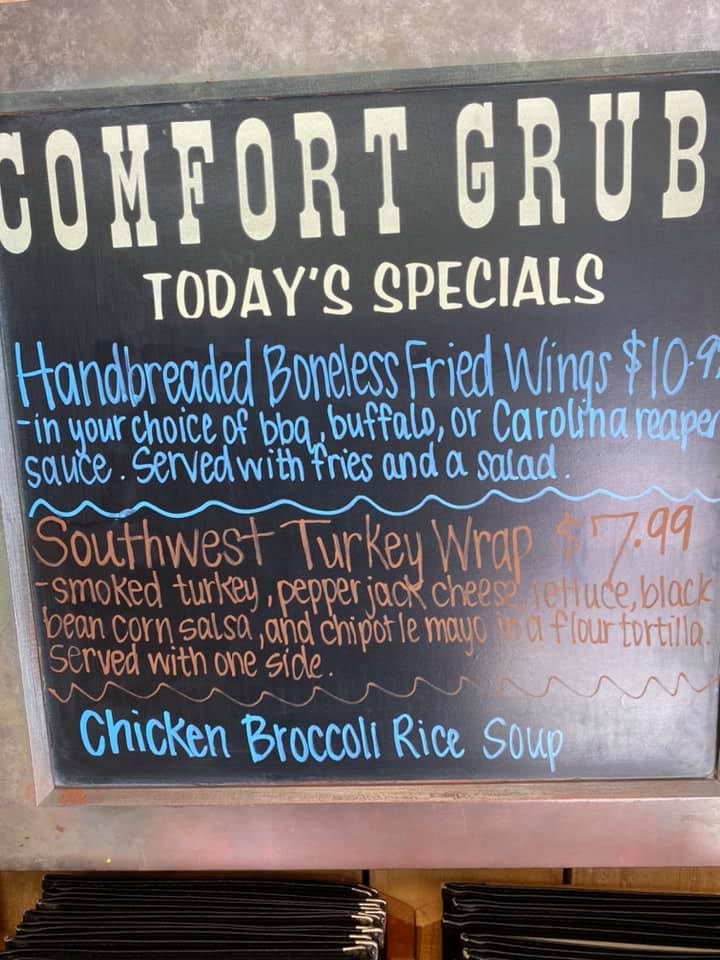 COMFORT GRUB
TODAY'S SPECIALS
Handbreaded Boneless Fried Wings $10.9
-in your choice of bbq, buffalo, or Carolina reaper
sauce. Served with fries and a salad.
Southwest Turkey Wrap $7.99
-smoked turkey, pepper jack cheese, lettuce, black
bean corn salsa, and chipotle mayo in a flour tortilla.
Served with one side.
Chicken Broccoli Rice Soup